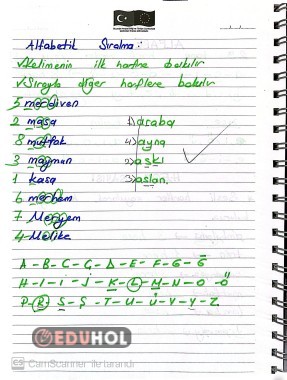 Alfabetik Sıralma:
✓Kelimenin ilk harfine bakılır
✓Sırayla diğer harflere bakılır
5 merdiven
2 masa 1) araba
8 mutfak 4) ayna
3 maymun 2) aşkı
1 kasa 3) aslan.
6 merhem
7 Meryem
4 Melike
A-B-C-Ç-D-E-F-G-Ğ
H-I-İ-J-K-L-M-N-O-Ö
P-R-S-Ş-T-U-Ü-V-Y-Z
EDUHOL
CS CamScanner ile tarandı